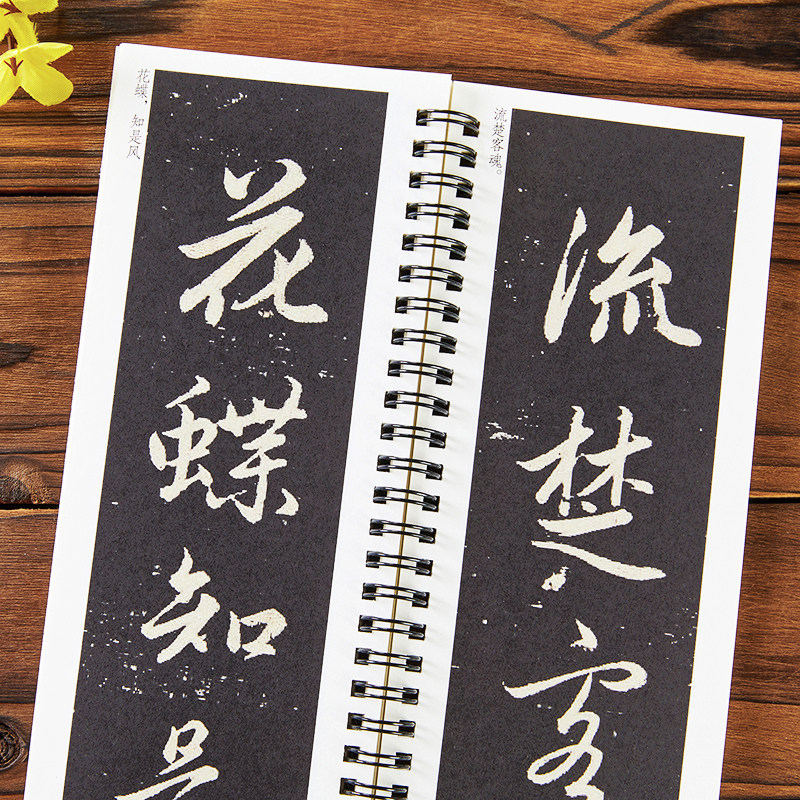 花蝶，知是风
花蝶知是
流楚客魂。
流楚客